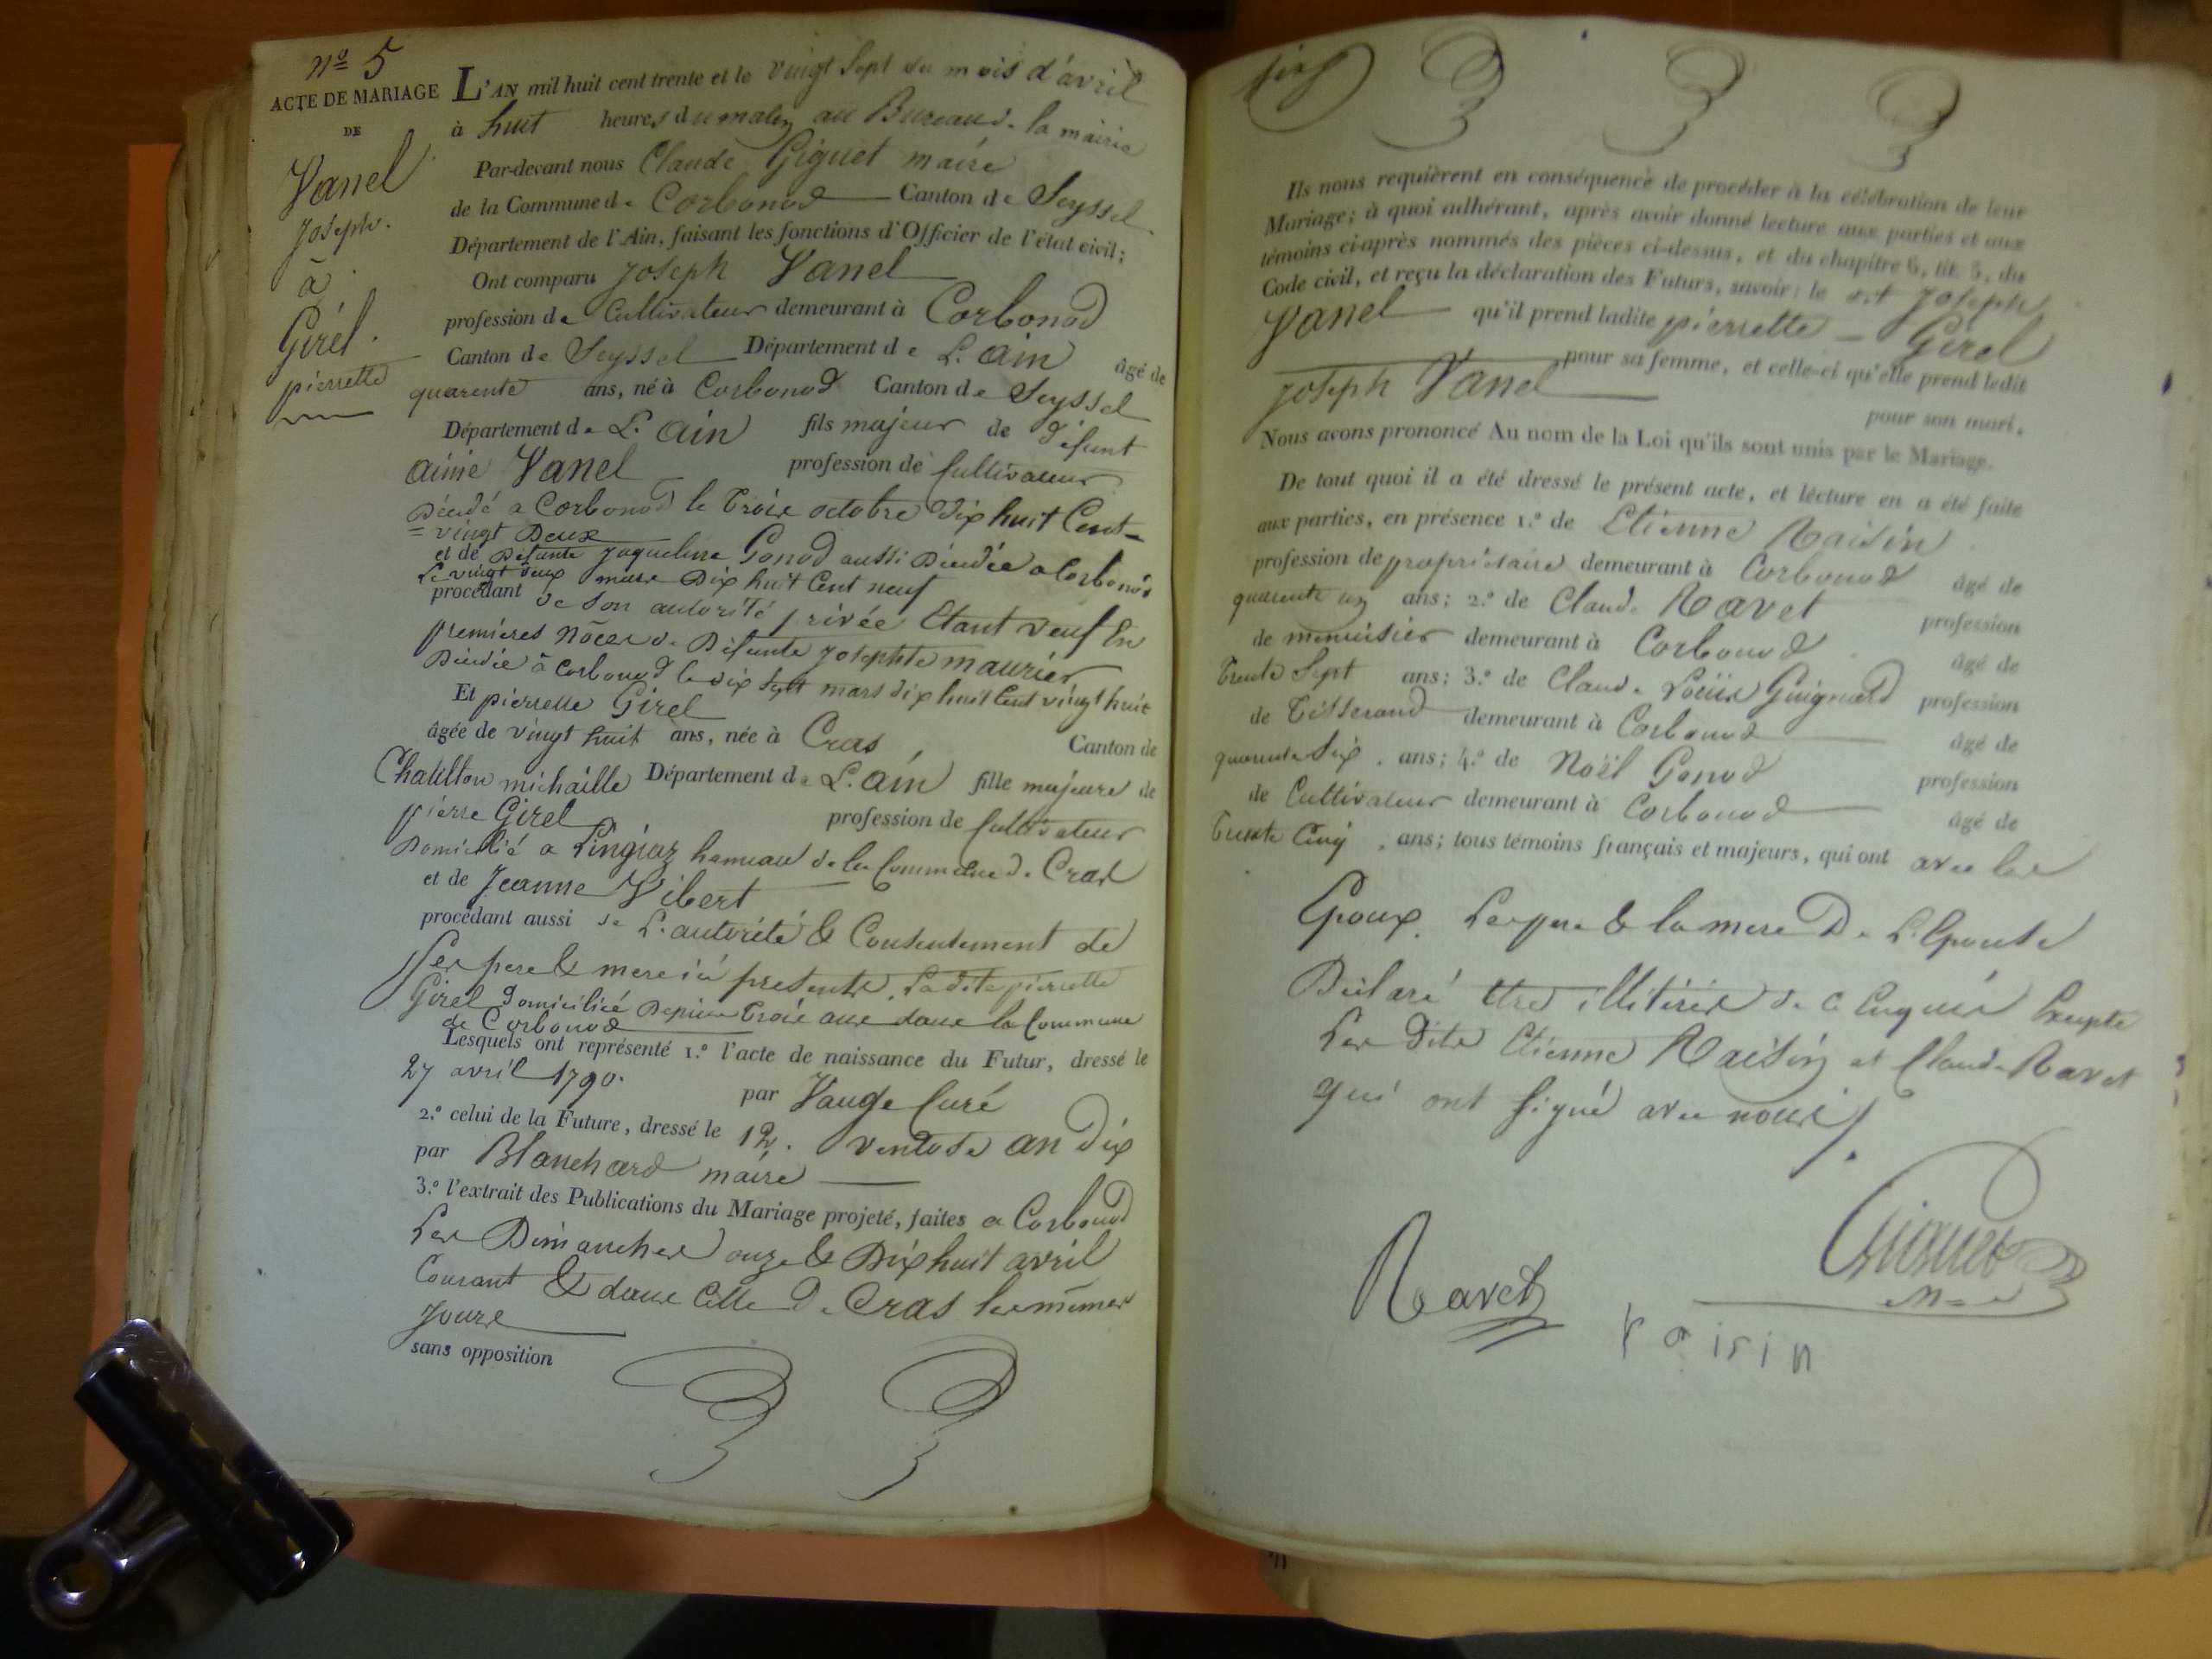 nº 5
ACTE DE MARIAGE
DE
Vanel
Joseph.
à
Girel.
pierrette
L'AN mil huit cent trente et le vingt Sept du mois d'avril
à huit heures du matin au Bureau de la mairie
Par-devant nous Claude Giguet maire
de la Commune de Corbonod Canton de Seyssel
Département de l'Ain, faisant les fonctions d'Officier de l'état civil;
Ont comparu Joseph Vanel
profession de Cultivateur demeurant à Corbonod
Canton de Seyssel Département de L'ain âgé de
quarente ans, né à Corbonod Canton de Seyssel
Département de L'ain fils majeur de défunt
aimé Vanel profession de Cultivateur
Décédé a Corbonod le trois octobre dix huit Cent
= vingt Deux
et de Defunte Jaqueline Gonod aussi Décédée a Corbonod
Le vingt deux mars Dix huit Cent neuf
procédant de son autorité privée Etant veuf En
premieres nôces de Défunte Josephte maurier
Décédée à Corbonod le dix Sept mars dix huit Cent vingt huit
Et pierrette Girel
âgée de vingt huit ans, née à Cras Canton de
Chatillon michaille Département de L'ain fille majeure de
pierre Girel profession de Cultivateur
Domicilié a Lingiaz hameau de la Commune de Cras
et de Jeanne Vibert
procédant aussi de L'autorité & Consentement de
Ses pere & mere ici presents. Ladite pierrette
Girel domiciliée Depuis trois ans dans la Commune
de Corbonod
Lesquels ont représenté 1.º l'acte de naissance du Futur, dressé le
27 avril 1790. par Vauge Curé
2.º celui de la Future, dressé le 12. ventose an dix
par Blanchard maire
3.º l'extrait des Publications du Mariage projeté, faites a Corbonod
Les Dimanches onze & Dix huit avril
Courant & dans Celle de Cras les mêmes
Jours
sans opposition
Ils nous requièrent en conséquence de procéder à la célébration de leur
Mariage; à quoi adhérant, après avoir donné lecture aux parties et aux
témoins ci-après nommés des pièces ci-dessus, et du chapitre 6, tit. 5, du
Code civil, et reçu la déclaration des Futurs, savoir: le dit Joseph
Vanel qu'il prend ladite pierrette Girel
pour sa femme, et celle-ci qu'elle prend ledit
Joseph Vanel
pour son mari.
Nous avons prononcé Au nom de la Loi qu'ils sont unis par le Mariage.
De tout quoi il a été dressé le présent acte, et lecture en a été faite
aux parties, en présence 1.º de Etienne Raisin
profession de propriétaire demeurant à Corbonod âgé de
quarente un ans; 2.º de Claude Ravet profession
de menuisier demeurant à Corbonod âgé de
trente Sept ans; 3.º de Claude Loüis Guignard profession
de Tisserand demeurant à Corbonod âgé de
quarente Six ans; 4.º de Noël Gonod profession
de Cultivateur demeurant à Corbonod âgé de
trente Cinq ans; tous témoins français et majeurs, qui ont avec les
Epoux. Le pere & la mere De L'Epouse
Déclaré être illitérés de ce Enquis Excepté
Les dits Etienne Raisin et Claude Ravet
qui ont Signé avec nous
Giguet
Ravet
raisin